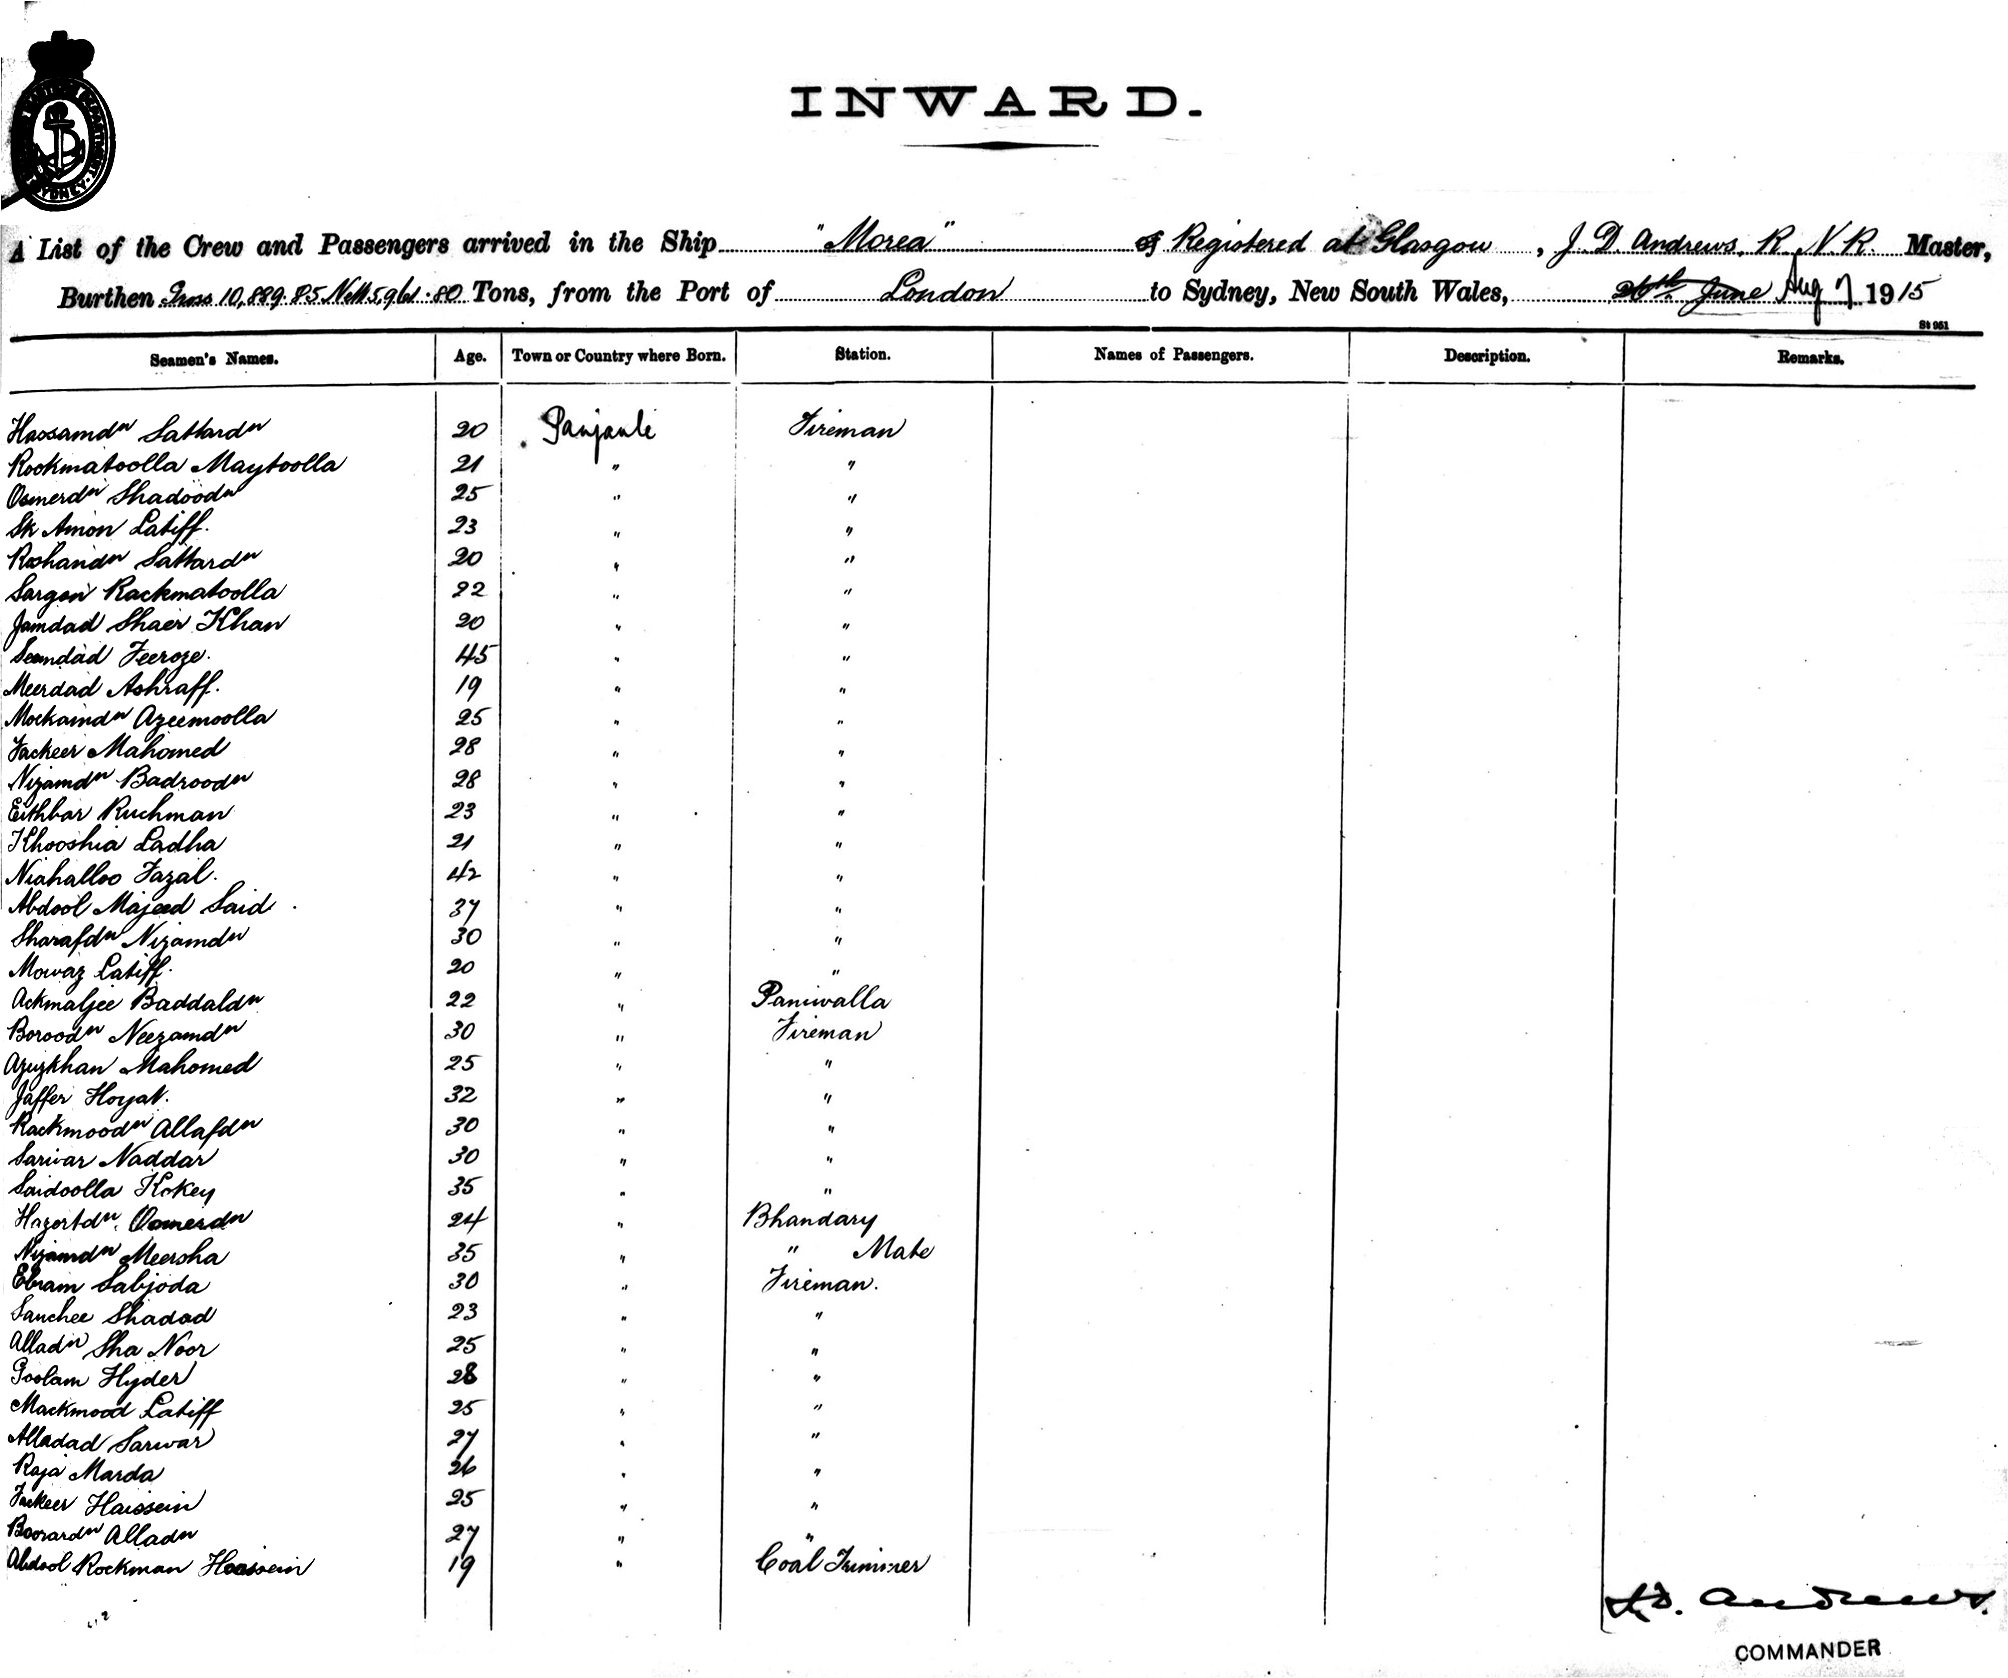 INWARD.
SYDNEY
A List of the Crew and Passengers arrived in the Ship "Morea" of Registered at Glasgow, J. D. Andrews, R. N. R. Master,
Burthen Gross 10,889.85 Nett 5,961.80 Tons, from the Port of London to Sydney, New South Wales, 26th June Aug 7 1915
St 961
Seamen's Names. Age. Town or Country where Born. Station. Names of Passengers. Description. Remarks.
Hassamdn Sattardn 20 Panjaub Fireman
Rookmatoolla Maytoolla 21 " "
Osmerdn Shadoodn 25 " "
Sk Amon Latiff. 23 " "
Roshandn Sattardn 20 " "
Sargon Rackmatoolla 22 " "
Jamdad Shaer Khan 20 " "
Seemdad Feeroze. 45 " "
Meerdad Ashraff. 19 " "
Mockamdn Azeemoolla 25 " "
Fackeer Mahomed 28 " "
Nizamdn Badroodn 28 " "
Eithbar Ruchman 23 " "
Khooshia Ladha 21 " "
Niahalloo Fazal. 42 " "
Abdool Majeed Said 37 " "
Sharafdn Nizamdn 30 " "
Mowaz Latiff. 20 " "
Ackmaljee Baddaldn 22 " Paniwalla
Boroodn Neezamdn 30 " Fireman
Azuzkhan Mahomed 25 " "
Jaffer Hoyat. 32 " "
Rackmoodn Allafdn 30 " "
Sarwar Naddar 30 " "
Saidoolla Kokey 35 " "
Hazertdn Osmerdn 24 " Bhandary
Nizamdn Meersha 35 " " Mate
Ebram Sabjoda 30 " Fireman.
Sanchee Shadad 23 " "
Alladn Sha Noor 25 " "
Goolam Hyder 28 " "
Mackmood Latiff 25 " "
Alladad Sarwar 27 " "
Raja Marda 26 " "
Fackeer Haissein 25 " "
Boorardn Alladn 27 " "
Abdool Rockman Hoossein 19 " Coal Trimmer
J.D. Andrews.
COMMANDER